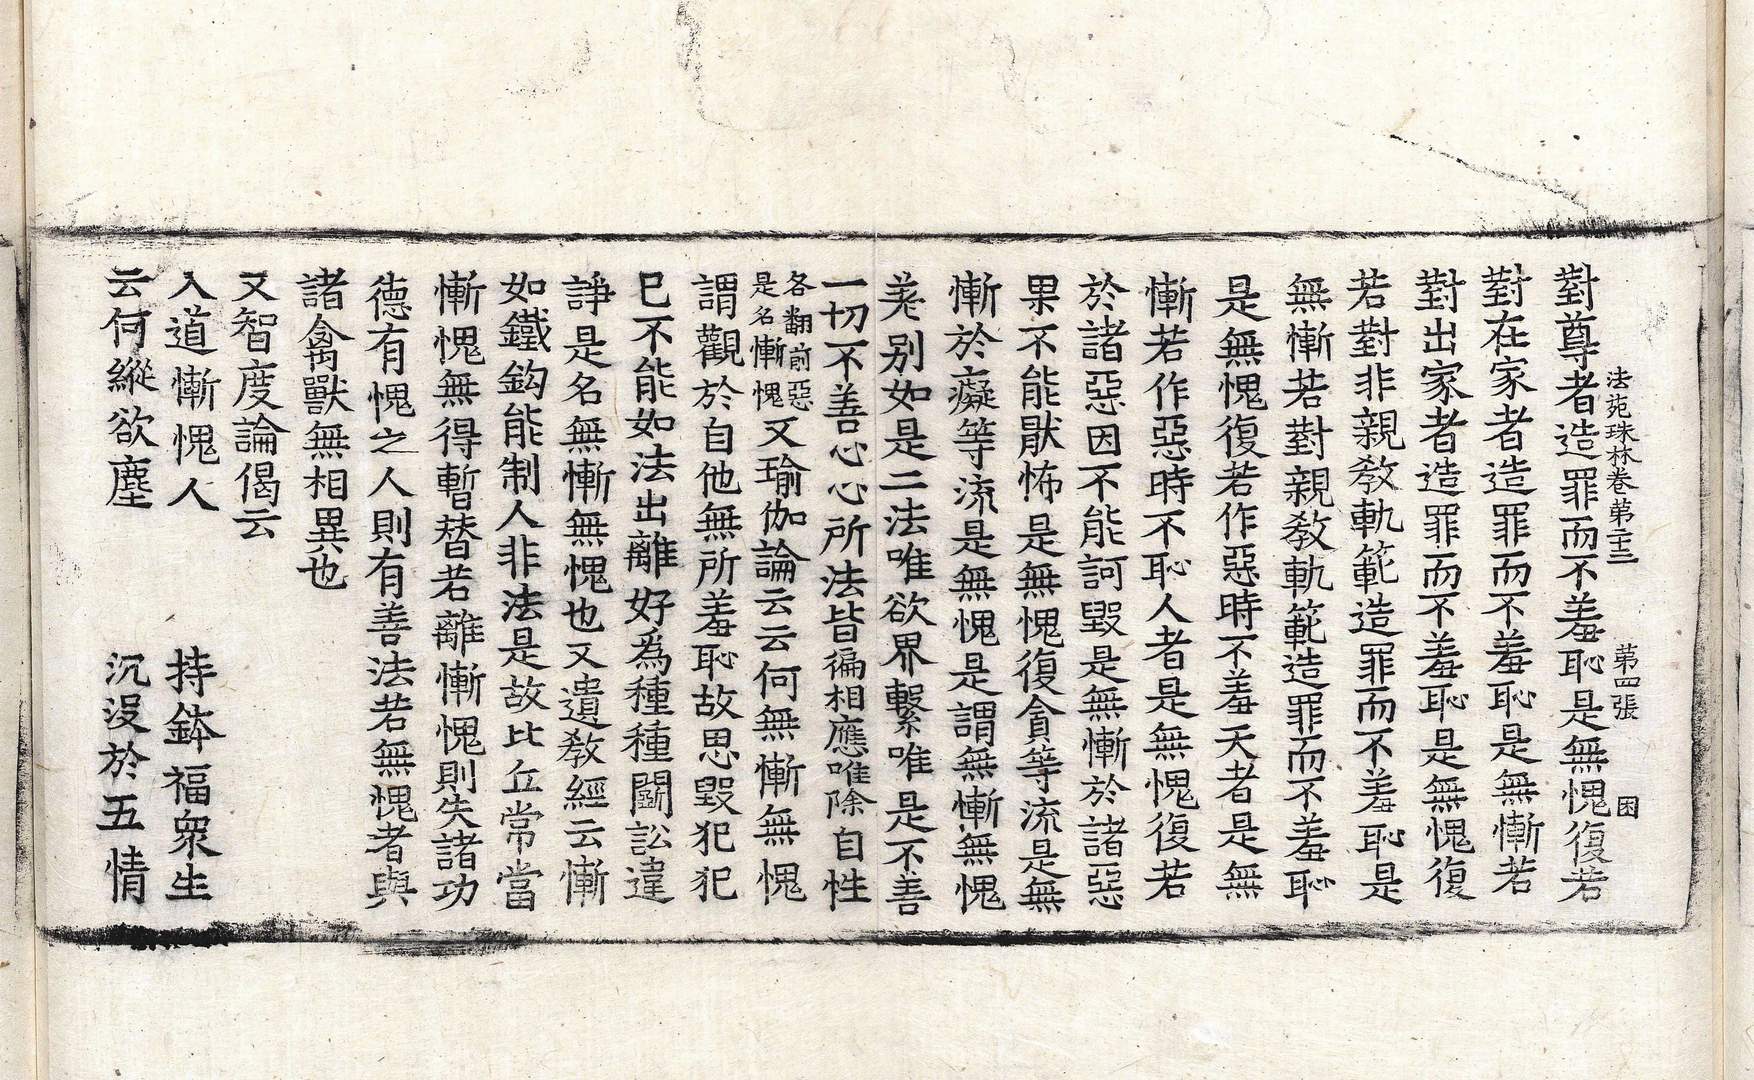 法苑珠林卷第二十三 第四張 困
對尊者造罪而不羞恥是無愧復若
對在家者造罪而不羞恥是無慚若
對出家者造罪而不羞恥是無愧復
若對非親敎軌範造罪而不羞恥是
無慚若對親敎軌範造罪而不羞恥
是無愧復若作惡時不羞天者是無
慚若作惡時不恥人者是無愧復若
於諸惡因不能訶毀是無慚於諸惡
果不能厭怖是無愧復貪等流是無
慚於癡等流是無愧是謂無慚無愧
差别如是二法唯欲界繫唯是不善
一切不善心心所法皆徧相應唯除自性
各翻前惡
是名慚愧
又瑜伽論云云何無慚無愧
謂觀於自他無所羞恥故思毀犯犯
已不能如法出離好爲種種鬬訟違
諍是名無慚無愧也又遺敎經云慚
如鐵鈎能制人非法是故比丘常當
慚愧無得暫替若離慚愧則失諸功
德有愧之人則有善法若無愧者與
諸禽獸無相異也
又智度論偈云
入道慚愧人 持鉢福衆生
云何縱欲塵 沉没於五情